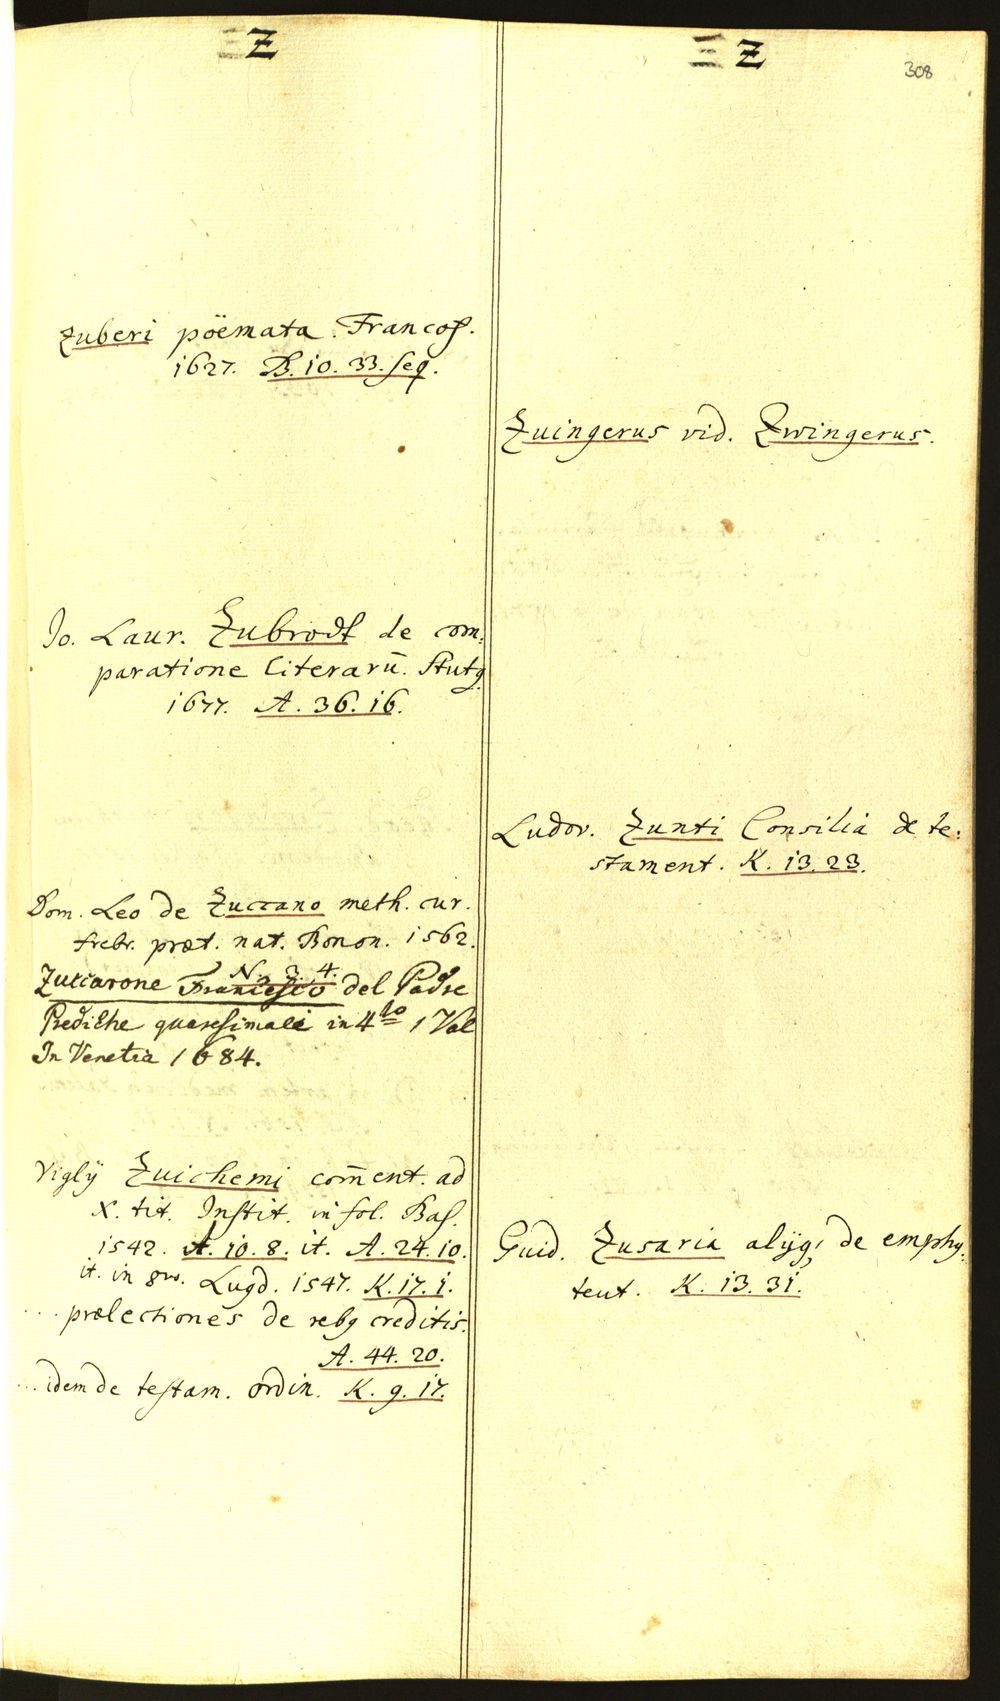 Z
Zuberi pöemata. Francof.
1627. B. 10. 33. seq.
Jo. Laur. Zubrodt de com:
paratione literarū. Stutg.
1677. A. 36. 16.
Dom. Leo de Zuccano meth. cur.
febr. præt. nat. Bonon. 1562.
N. 3. 4.
Zuccarone Francesco del Padre
Prediche quaresimali in 4to 1 Vol
In Venetia 1684.
Viglÿ Zuichemi com̄ent. ad
X. tit. Instit. in fol. Bas.
1542. A. 10. 8. it. A. 24. 10.
it. in 8vo. Lugd. 1547. K. 17. 1.
... prælectiones de rebq creditis.
A. 44. 20.
... idem de testam. ordin. K. 9. 17.
Z
308
Zuingerus vid. Zwingerus.
Ludov. Zunti Consilia de te:
stament. K. 13. 23.
Guid. Zusaria alÿq, de emphy:
teut. K. 13. 31.